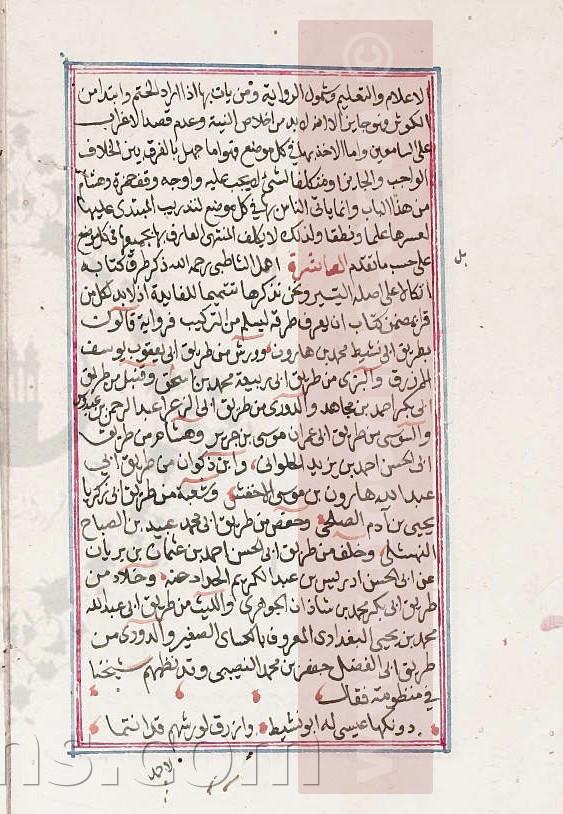 الاعلام والتعليم وشمول الرواية ومن يات بها اذا اراد الختم وابتدا من
الكوثر فهو جايز الا انه لا بد من اخلاص النية وعدم قصد الاغراب
على السامعين واما الاخذ بها في كل موضع فهو اما جهل بالفرق بين الخلاف
الواجب والجايز واما تكلف لشئ لا يجب عليه واوجه وقف حمزة وهشام
من هذا الباب وانما ياتى الناس بها في كل موضع لتدريب المبتدى عليها
لعسرها علما ونطقا ولذلك لا يكلف المنتهى العارف بها بجميعها في كل موضع
بل
على حسب ما تقدم العاشرة اهمل الشاطبي رحمه الله ذكر طرق كتابه
اتكالا على اصله التيسير ونحن نذكرها تتميما للفايدة اذ لابد لكل من
قرا بمضمن كتاب ان يعرف طرقه ليسلم من التركيب فرواية قالون
بطريق ابى نشيط محمد بن هارون وورش من طريق ابى يعقوب يوسف
الازرق والبزى من طريق ابى ربيعة محمد بن اسحق وقنبل من طريق
ابى بكر احمد بن مجاهد والدورى من طريق ابى الزعرا عبد الرحمن بن عبدوس
والسوسى من طريق ابى عمران موسى بن جرير وهشام من طريق
ابى الحسن احمد بن يزيد الحلوانى وابن ذكوان من طريق ابى
عبد الله هارون بن موسى الاخفش وشعبة من طريق ابى زكريا
يحيى بن آدم الصلحى وحفص من طريق ابى محمد عبيد بن الصباح
النهشلى وخلف من طريق ابى الحسن احمد بن عثمان بن بويان
عن ابى الحسن ادريس بن عبد الكريم الحداد عنه وخلاد من
طريق ابى بكر محمد بن شاذان الجوهرى والليث من طريق ابى عبد الله
محمد بن يحيى البغدادى المعروف بالكسائى الصغير والدورى من
طريق ابى الفضل جعفر بن محمد النصيبى وقد نظمهم شيخنا
في منظومته فقال
دونكها عيسى له ابو نشيط وازرق لورشهم قد انتما
ns.com